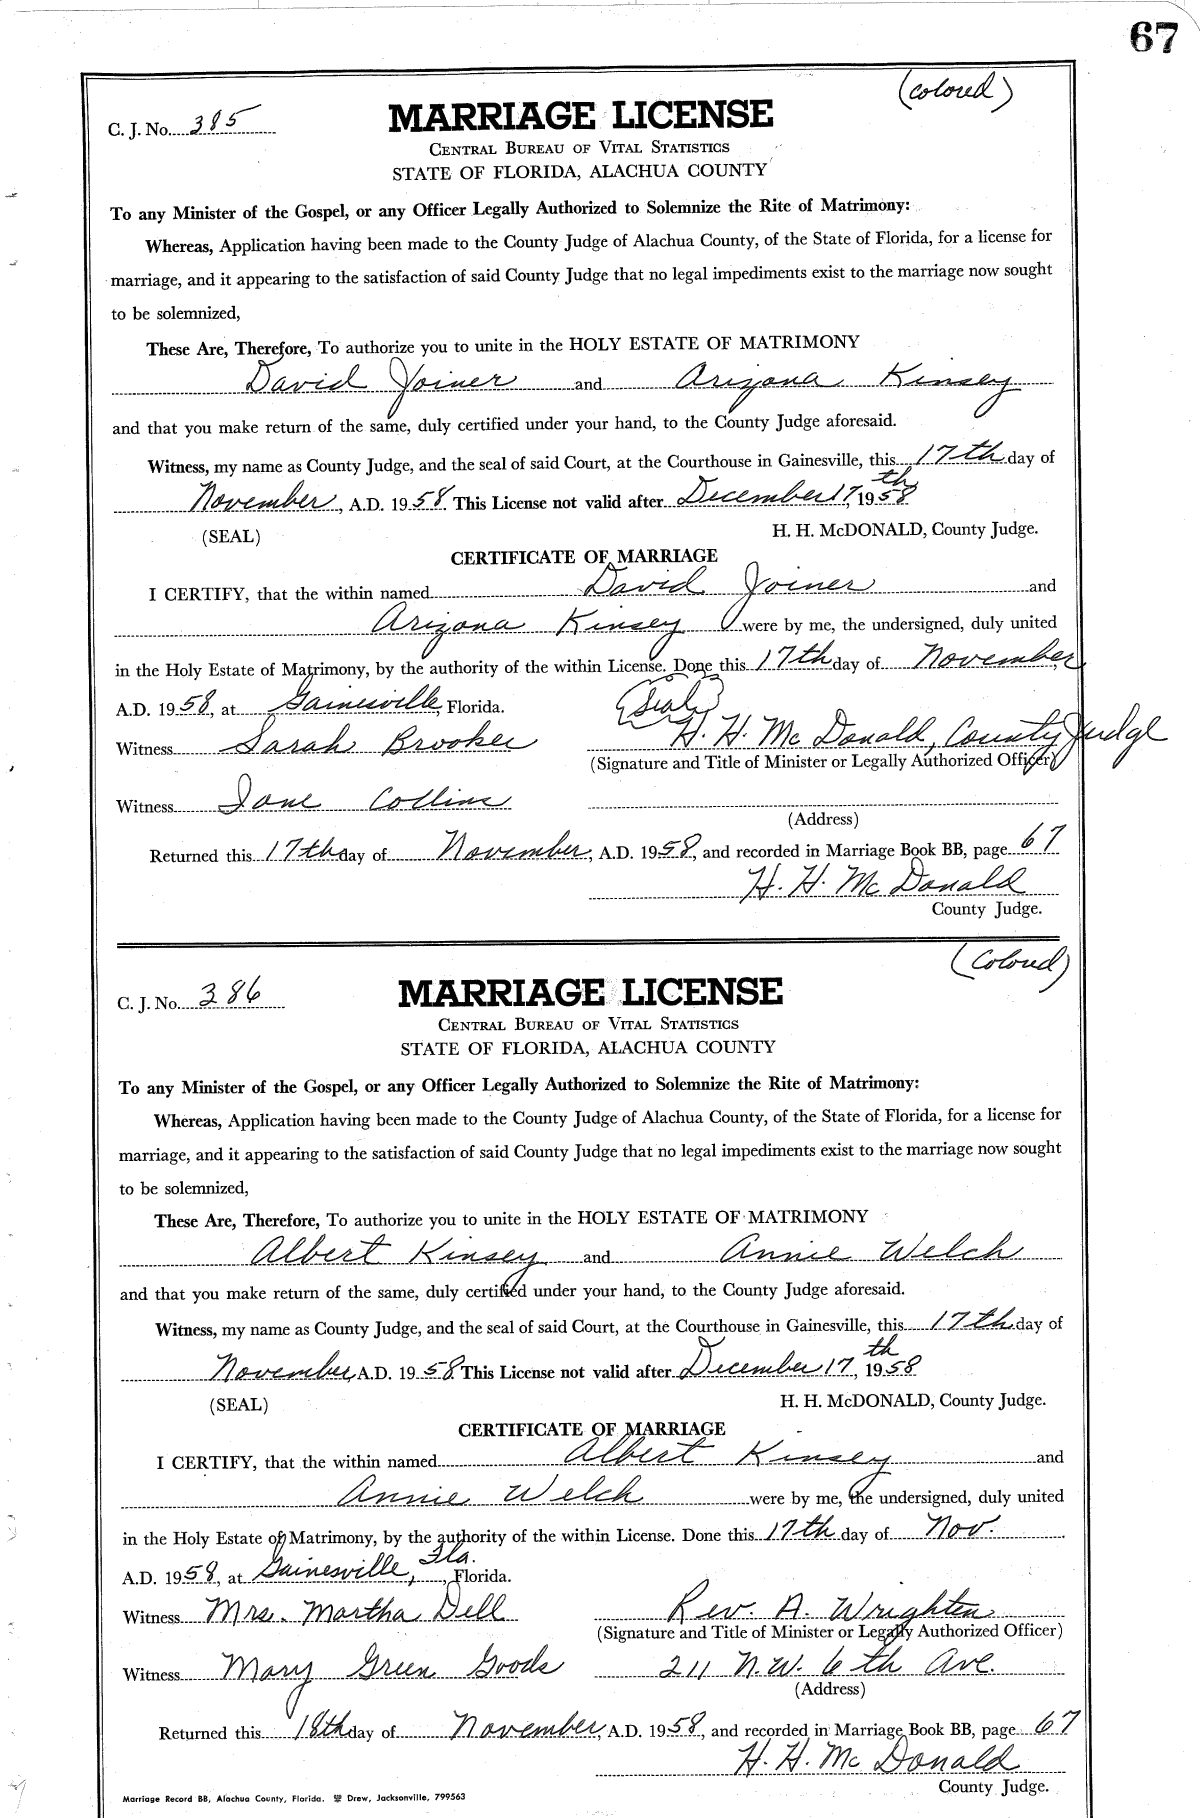 67
(colored)
C. J. No. 385
MARRIAGE LICENSE
CENTRAL BUREAU OF VITAL STATISTICS
STATE OF FLORIDA, ALACHUA COUNTY
To any Minister of the Gospel, or any Officer Legally Authorized to Solemnize the Rite of Matrimony:
Whereas, Application having been made to the County Judge of Alachua County, of the State of Florida, for a license for
marriage, and it appearing to the satisfaction of said County Judge that no legal impediments exist to the marriage now sought
to be solemnized,
These Are, Therefore, To authorize you to unite in the HOLY ESTATE OF MATRIMONY
David Joiner and Arizona Kinsey
and that you make return of the same, duly certified under your hand, to the County Judge aforesaid.
Witness, my name as County Judge, and the seal of said Court, at the Courthouse in Gainesville, this 17th day of
November, A.D. 1958. This License not valid after December 17th, 1958
(SEAL) H. H. McDONALD, County Judge.
CERTIFICATE OF MARRIAGE
I CERTIFY, that the within named David Joiner and
Arizona Kinsey were by me, the undersigned, duly united
in the Holy Estate of Matrimony, by the authority of the within License. Done this 17th day of November,
A.D. 1958, at Gainesville, Florida. (Seal)
Witness Sarah Brooker H. H. McDonald, County Judge
(Signature and Title of Minister or Legally Authorized Officer)
Witness Jane Collins
(Address)
Returned this 17th day of November, A.D. 1958, and recorded in Marriage Book BB, page 67
H. H. McDonald
County Judge.
(Colored)
C. J. No. 386
MARRIAGE LICENSE
CENTRAL BUREAU OF VITAL STATISTICS
STATE OF FLORIDA, ALACHUA COUNTY
To any Minister of the Gospel, or any Officer Legally Authorized to Solemnize the Rite of Matrimony:
Whereas, Application having been made to the County Judge of Alachua County, of the State of Florida, for a license for
marriage, and it appearing to the satisfaction of said County Judge that no legal impediments exist to the marriage now sought
to be solemnized,
These Are, Therefore, To authorize you to unite in the HOLY ESTATE OF MATRIMONY
Albert Kinsey and Annie Welch
and that you make return of the same, duly certified under your hand, to the County Judge aforesaid.
Witness, my name as County Judge, and the seal of said Court, at the Courthouse in Gainesville, this 17th day of
November, A.D. 1958. This License not valid after December 17th, 1958
(SEAL) H. H. McDONALD, County Judge.
CERTIFICATE OF MARRIAGE
I CERTIFY, that the within named Albert Kinsey and
Annie Welch were by me, the undersigned, duly united
in the Holy Estate of Matrimony, by the authority of the within License. Done this 17th day of Nov.
A.D. 1958, at Gainesville, Fla., Florida.
Witness Mrs. Martha Dell Rev. A. Wrighten
(Signature and Title of Minister or Legally Authorized Officer)
Witness Mary Green Goods 211 N.W. 6th Ave.
(Address)
Returned this 18th day of November, A.D. 1958, and recorded in Marriage Book BB, page 67
H. H. McDonald
County Judge.
Marriage Record BB, Alachua County, Florida. Drew, Jacksonville, 799563